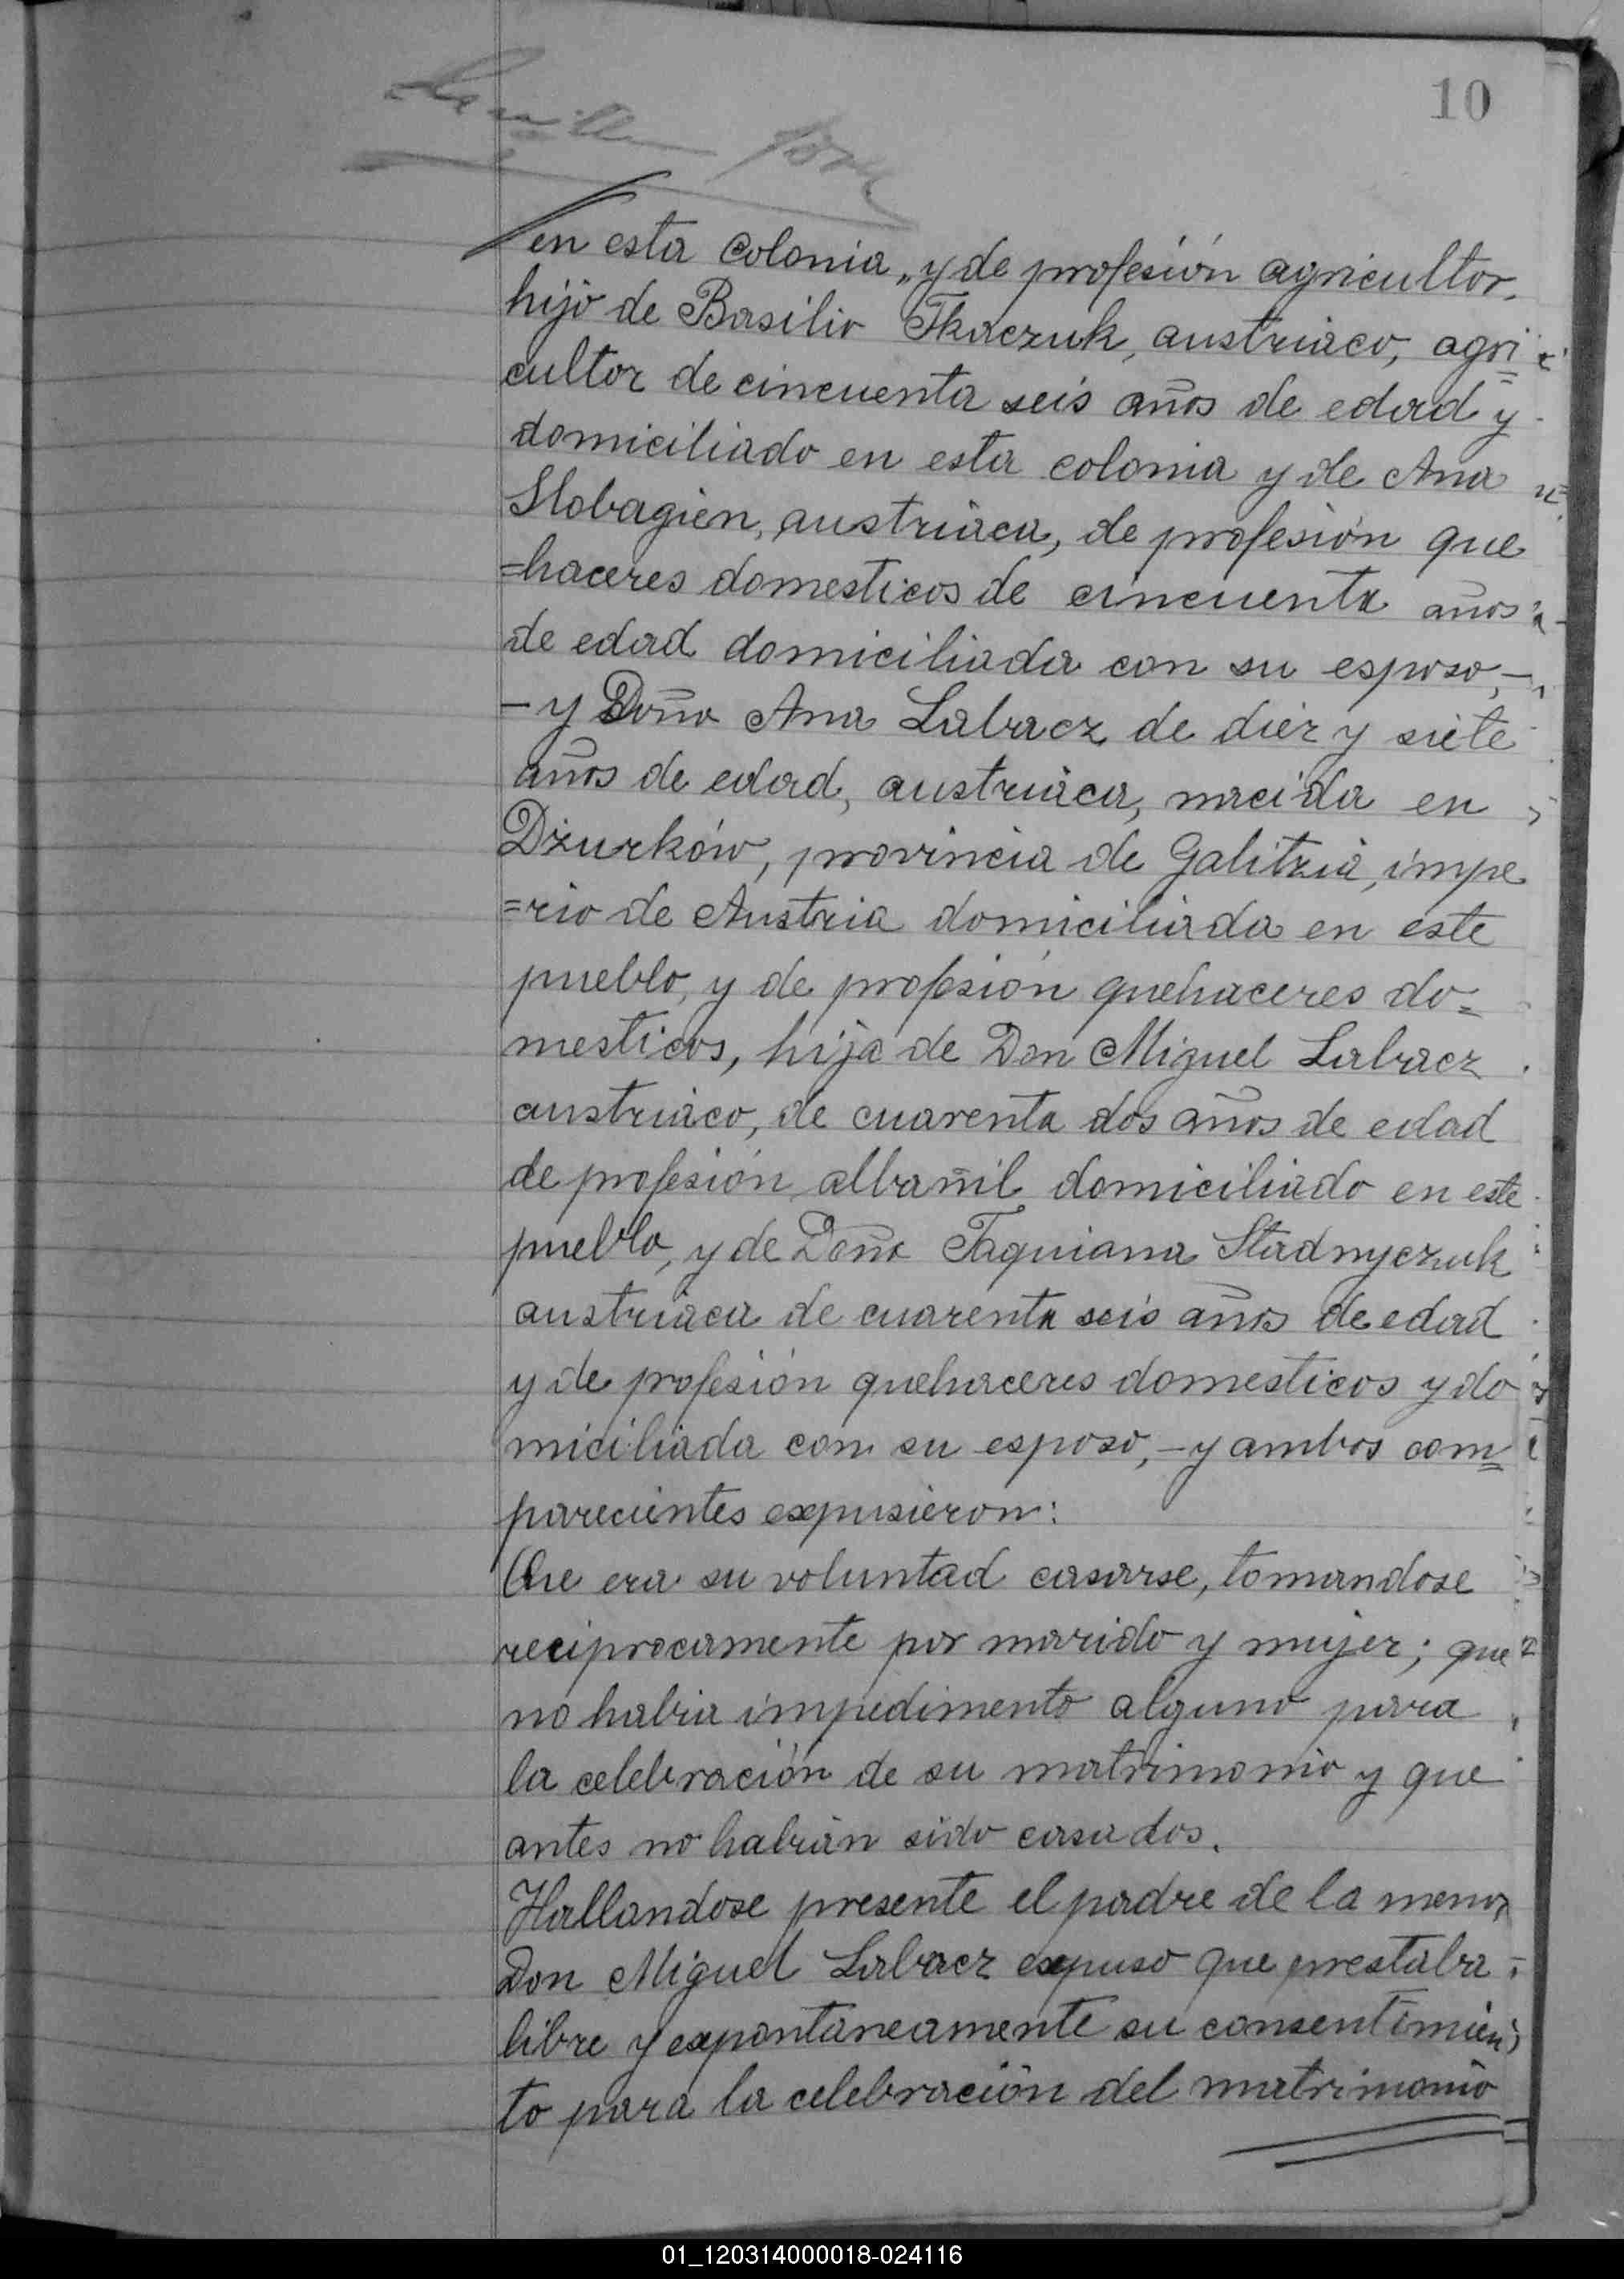 10
en esta colonia, y de profesión agricultor,
hijo de Basilio Tkaczuk, austriaco, agri
cultor de cincuenta seis años de edad y
domiciliado en esta colonia y de Ana
Slobagien, austriaca, de profesión que
=haceres domesticos de cincuenta años
de edad domiciliada con su esposo,–
– y Doña Ana Labacz de diez y siete
años de edad, austriaca, nacida en
Dżurków, provincia de Galitzia, impe
=rio de Austria domiciliada en este
pueblo, y de profesión quehaceres do=
mesticos, hija de Don Miguel Labacz
austriaco, de cuarenta dos años de edad
de profesión albañil domiciliado en este
pueblo, y de Doña Taquiana Stadnyczuk
austriaca de cuarenta seis años de edad
y de profesión quehaceres domesticos y do
miciliada con su esposo, – y ambos com=
parecientes expusieron:
Que era su voluntad casarse, tomandose
reciprocamente por marido y mujer; que
no habia impedimento alguno para
la celebración de su matrimonio y que
antes no habian sido casados.
Hallandose presente el padre de la menor
Don Miguel Labacz expuso que prestaba
libre y expontaneamente su consentimien
to para la celebración del matrimonio
01_120314000018-024116